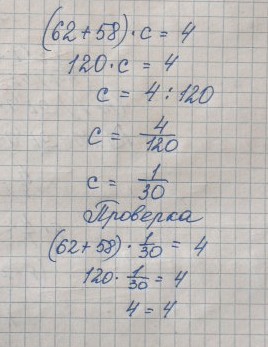 (62+58)·c = 4
120·c = 4
c = 4 : 120
c = 4/120
c = 1/30
Проверка
(62+58)·1/30 = 4
120·1/30 = 4
4 = 4